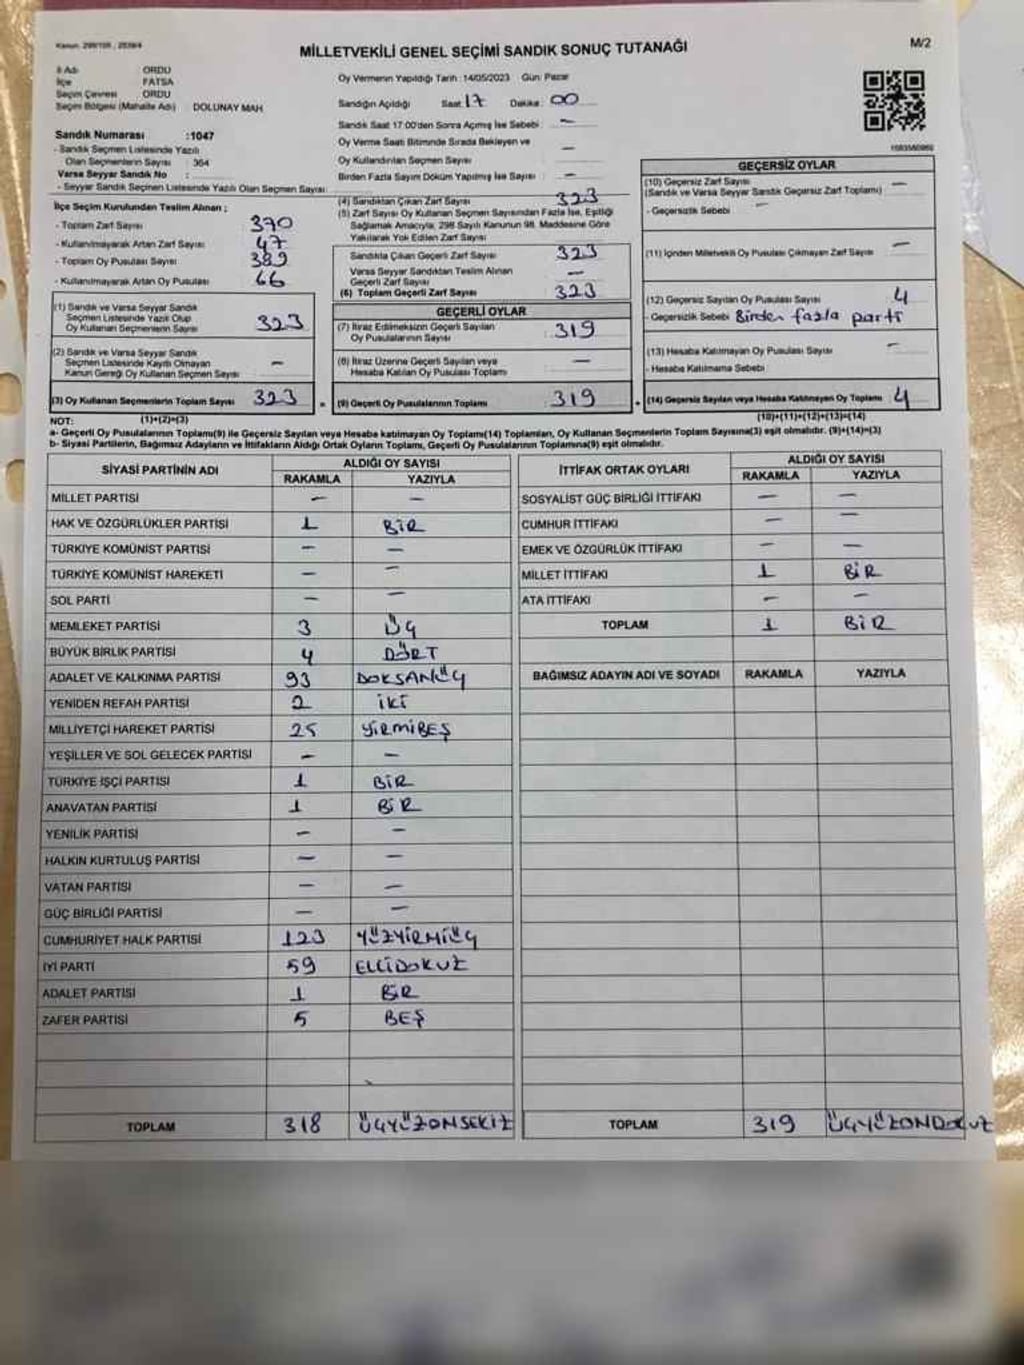 Kanun: 298/105, 2839/4
MİLLETVEKİLİ GENEL SEÇİMİ SANDIK SONUÇ TUTANAĞI
M/2
İl Adı ORDU
İlçe FATSA
Seçim Çevresi ORDU
Seçim Bölgesi (Mahalle Adı) DOLUNAY MAH
Sandık Numarası :1047
- Sandık Seçmen Listesinde Yazılı
Olan Seçmenlerin Sayısı : 364
Varsa Seyyar Sandık No :
- Seyyar Sandık Seçmen Listesinde Yazılı Olan Seçmen Sayısı :
İlçe Seçim Kurulundan Teslim Alınan ;
- Toplam Zarf Sayısı 370
- Kullanılmayarak Artan Zarf Sayısı 47
- Toplam Oy Pusulası Sayısı 389
- Kullanılmayarak Artan Oy Pusulası 66
(1) Sandık ve Varsa Seyyar Sandık
Seçmen Listesinde Yazılı Olup
Oy Kullanan Seçmenlerin Sayısı 323
(2) Sandık ve Varsa Seyyar Sandık
Seçmen Listesinde Kayıtlı Olmayan
Kanun Gereği Oy Kullanan Seçmen Sayısı –
(3) Oy Kullanan Seçmenlerin Toplam Sayısı 323
Oy Vermenin Yapıldığı Tarih : 14/05/2023 Gün: Pazar
Sandığın Açıldığı Saat: 17 Dakika: 00
Sandık Saat 17:00'den Sonra Açılmış İse Sebebi : –
Oy Verme Saati Bitiminde Sırada Bekleyen ve
Oy Kullandırılan Seçmen Sayısı –
Birden Fazla Sayım Döküm Yapılmış İse Sayısı : –
(4) Sandıktan Çıkan Zarf Sayısı 323
(5) Zarf Sayısı Oy Kullanan Seçmen Sayısından Fazla İse, Eşitliği
Sağlamak Amacıyla; 298 Sayılı Kanunun 98. Maddesine Göre
Yakılarak Yok Edilen Zarf Sayısı
Sandıkta Çıkan Geçerli Zarf Sayısı 323
Varsa Seyyar Sandıktan Teslim Alınan
Geçerli Zarf Sayısı –
(6) Toplam Geçerli Zarf Sayısı 323
GEÇERLİ OYLAR
(7) İtiraz Edilmeksizin Geçerli Sayılan
Oy Pusulalarının Sayısı 319
(8) İtiraz Üzerine Geçerli Sayılan veya
Hesaba Katılan Oy Pusulası Toplamı –
= (9) Geçerli Oy Pusulalarının Toplamı 319
GEÇERSİZ OYLAR
(10) Geçersiz Zarf Sayısı
(Sandık ve Varsa Seyyar Sandık Geçersiz Zarf Toplamı) –
- Geçersizlik Sebebi –
(11) İçinden Milletvekili Oy Pusulası Çıkmayan Zarf Sayısı –
(12) Geçersiz Sayılan Oy Pusulası Sayısı 4
- Geçersizlik Sebebi Birden fazla parti
(13) Hesaba Katılmayan Oy Pusulası Sayısı –
- Hesaba Katılmama Sebebi
+ (14) Geçersiz Sayılan veya Hesaba Katılmayan Oy Toplamı 4
NOT: (1)+(2)=(3) (10)+(11)+(12)+(13)=(14)
a- Geçerli Oy Pusulalarının Toplamı(9) ile Geçersiz Sayılan veya Hesaba katılmayan Oy Toplamı(14) Toplamları, Oy Kullanan Seçmenlerin Toplam Sayısına(3) eşit olmalıdır. (9)+(14)=(3)
b- Siyasi Partilerin, Bağımsız Adayların ve İttifakların Aldığı Ortak Oyların Toplamı, Geçerli Oy Pusulalarının Toplamına(9) eşit olmalıdır.
SİYASİ PARTİNİN ADI ALDIĞI OY SAYISI
RAKAMLA YAZIYLA
MİLLET PARTİSİ – –
HAK VE ÖZGÜRLÜKLER PARTİSİ 1 BİR
TÜRKİYE KOMÜNİST PARTİSİ – –
TÜRKİYE KOMÜNİST HAREKETİ – –
SOL PARTİ – –
MEMLEKET PARTİSİ 3 ÜÇ
BÜYÜK BİRLİK PARTİSİ 4 DÖRT
ADALET VE KALKINMA PARTİSİ 93 DOKSANÜÇ
YENİDEN REFAH PARTİSİ 2 İKİ
MİLLİYETÇİ HAREKET PARTİSİ 25 YİRMİBEŞ
YEŞİLLER VE SOL GELECEK PARTİSİ – –
TÜRKİYE İŞÇİ PARTİSİ 1 BİR
ANAVATAN PARTİSİ 1 BİR
YENİLİK PARTİSİ – –
HALKIN KURTULUŞ PARTİSİ – –
VATAN PARTİSİ – –
GÜÇ BİRLİĞİ PARTİSİ – –
CUMHURİYET HALK PARTİSİ 123 YÜZYİRMİÜÇ
İYİ PARTİ 59 ELLİDOKUZ
ADALET PARTİSİ 1 BİR
ZAFER PARTİSİ 5 BEŞ
TOPLAM 318 ÜÇYÜZONSEKİZ
İTTİFAK ORTAK OYLARI ALDIĞI OY SAYISI
RAKAMLA YAZIYLA
SOSYALİST GÜÇ BİRLİĞİ İTTİFAKI – –
CUMHUR İTTİFAKI – –
EMEK VE ÖZGÜRLÜK İTTİFAKI – –
MİLLET İTTİFAKI 1 BİR
ATA İTTİFAKI – –
TOPLAM 1 BİR
BAĞIMSIZ ADAYIN ADI VE SOYADI RAKAMLA YAZIYLA
TOPLAM 319 ÜÇYÜZONDOKUZ